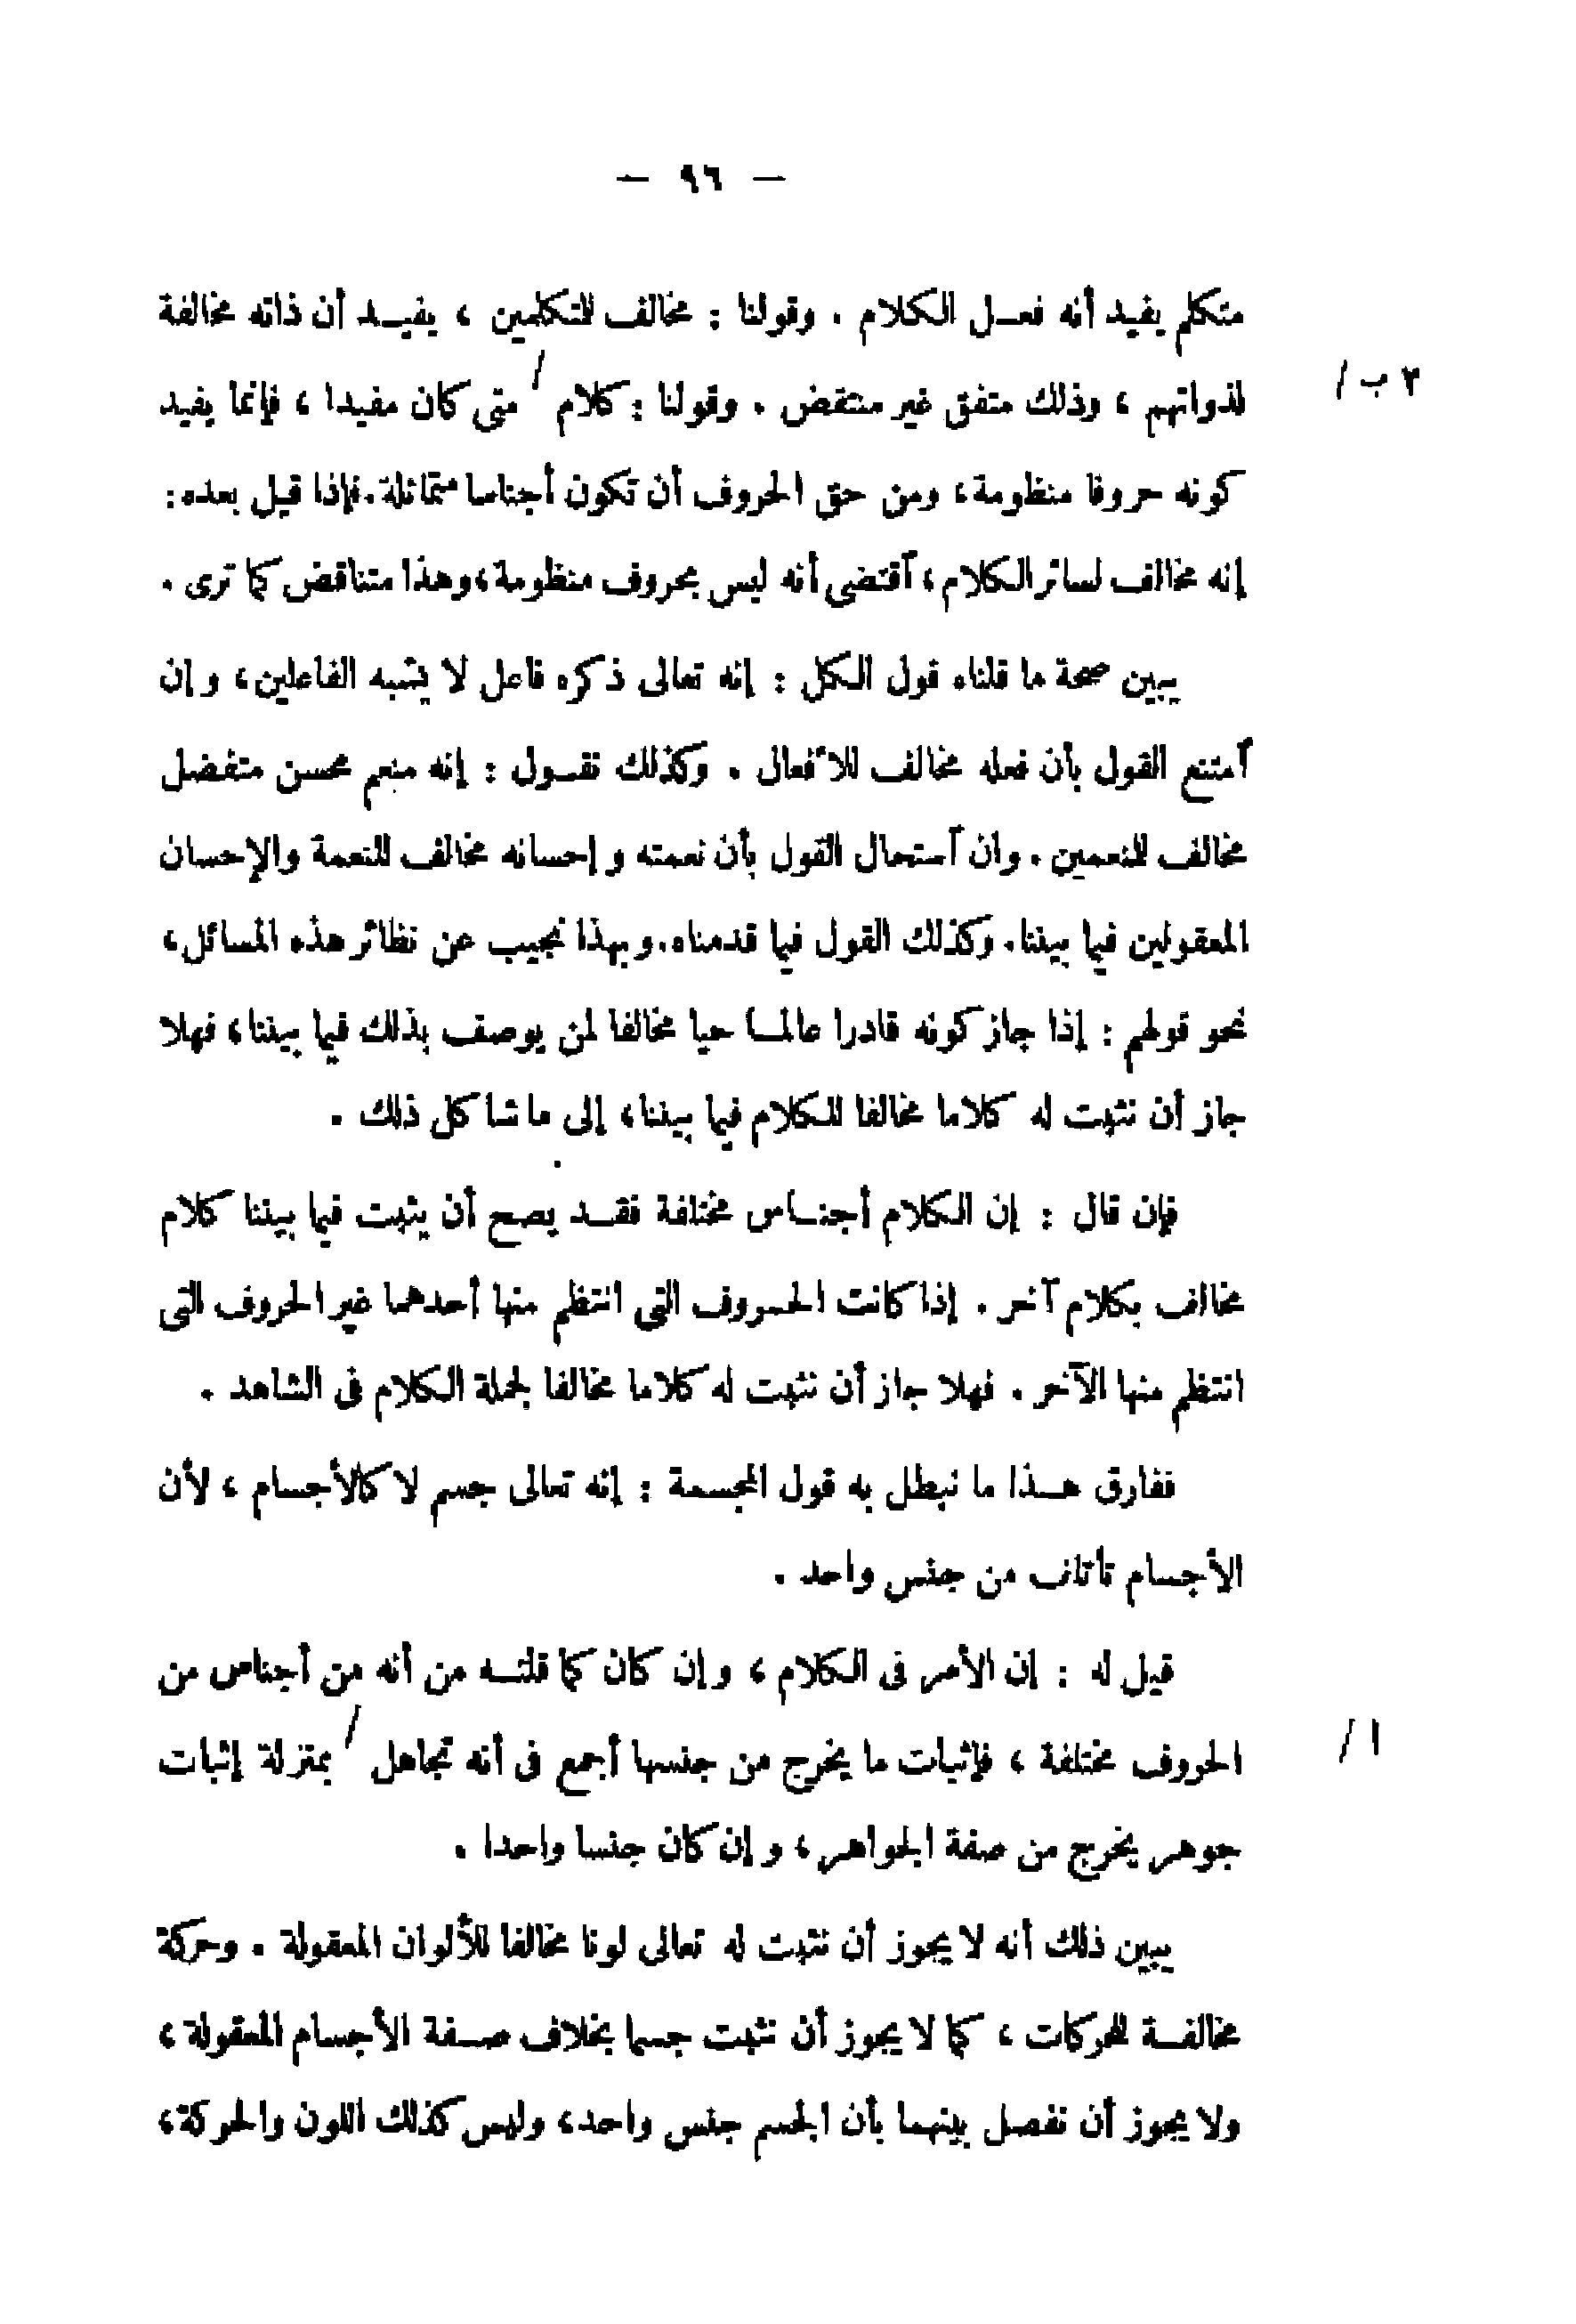 — ٩٦ —
متكلم يفيد أنه فعـل الكلام . وقولنا : مخالف للتكلمين ، يفيـد أن ذاته مخالفة
لذواتهم ، وذلك متفق غير منتقض . وقولنا : كلام / متى كان مفيدا ، فإنما يفيد
٣ ب /
كونه حروفا منظومة، ومن حق الحروف أن تكون أجناسا متماثلة. فإذا قيل بعده:
إنه مخالف لسائر الكلام، آقتضى أنه ليس بحروف منظومة، وهذا متناقض كما ترى .
يبين صحة ما قلناه قول الكل : إنه تعالى ذكره فاعل لا يشبه الفاعلين، وإن
آمتنع القول بأن فعله مخالف للأفعال . وكذلك نقـول : إنه منعم محسن متفضل
مخالف للنعمين . وان آستحال القول بأن نعمته وإحسانه مخالف للنعمة والإحسان
المعقولين فيما بيننا. وكذلك القول فيما قدمناه. وبهذا نجيب عن نظائر هذه المسائل،
نحو قولهم : إذا جاز كونه قادرا عالمـا حيا مخالفا لمن يوصف بذلك فيما بيننا، فهلا
جاز أن نثبت له كلاما مخالفا للكلام فيما بيننا، إلى ما شاكل ذلك .
فإن قال : إن الكلام أجنـاس مختلفة فقـد يصح أن يثبت فيما بيننا كلام
مخالف بكلام آخر . إذا كانت الحـروف التى انتظم منها أحدهما غير الحروف التى
انتظم منها الآخر . فهلا جاز أن نثبت له كلاما مخالفا لجملة الكلام فى الشاهد .
ففارق هـذا ما نبطل به قول المجسمة : إنه تعالى جسم لا كالأجسام ، لأن
الأجسام تأتلف من جنس واحد .
قيل له : إن الأمر فى الكلام ، وإن كان كما قلتـه من أنه من أجناس من
الحروف مختلفة ، فإثبات ما يخرج من جنسها أجمع فى أنه تجاهل / بمنزلة إثبات
١ /
جوهر يخرج من صفة الجواهر ، وإن كان جنسا واحدا .
يبين ذلك أنه لا يجوز أن نثبت له تعالى لونا مخالفا للألوان المعقولة . وحركة
مخالفـة للحركات ، كما لا يجوز أن نثبت جسما بخلاف صـفة الأجسام المعقولة ،
ولا يجوز أن نفصل بينهما بأن الجسم جنس واحد، وليس كذلك اللون والحركة،